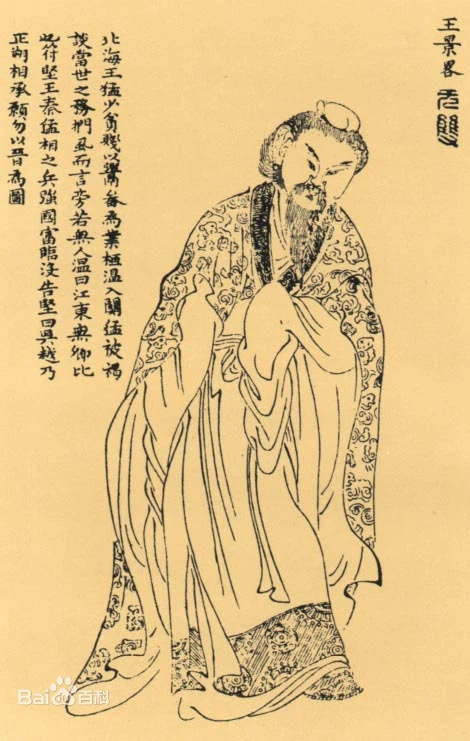 王景畧 无雙
北海王猛少貧賤以鬻畚為業桓温入關猛被褐
談當世之務捫虱而言旁若無人温曰江東無卿比
也苻堅王秦猛相之兵強國富臨沒告堅曰吳越乃
正朔相承願勿以晉為圖
Bai百科